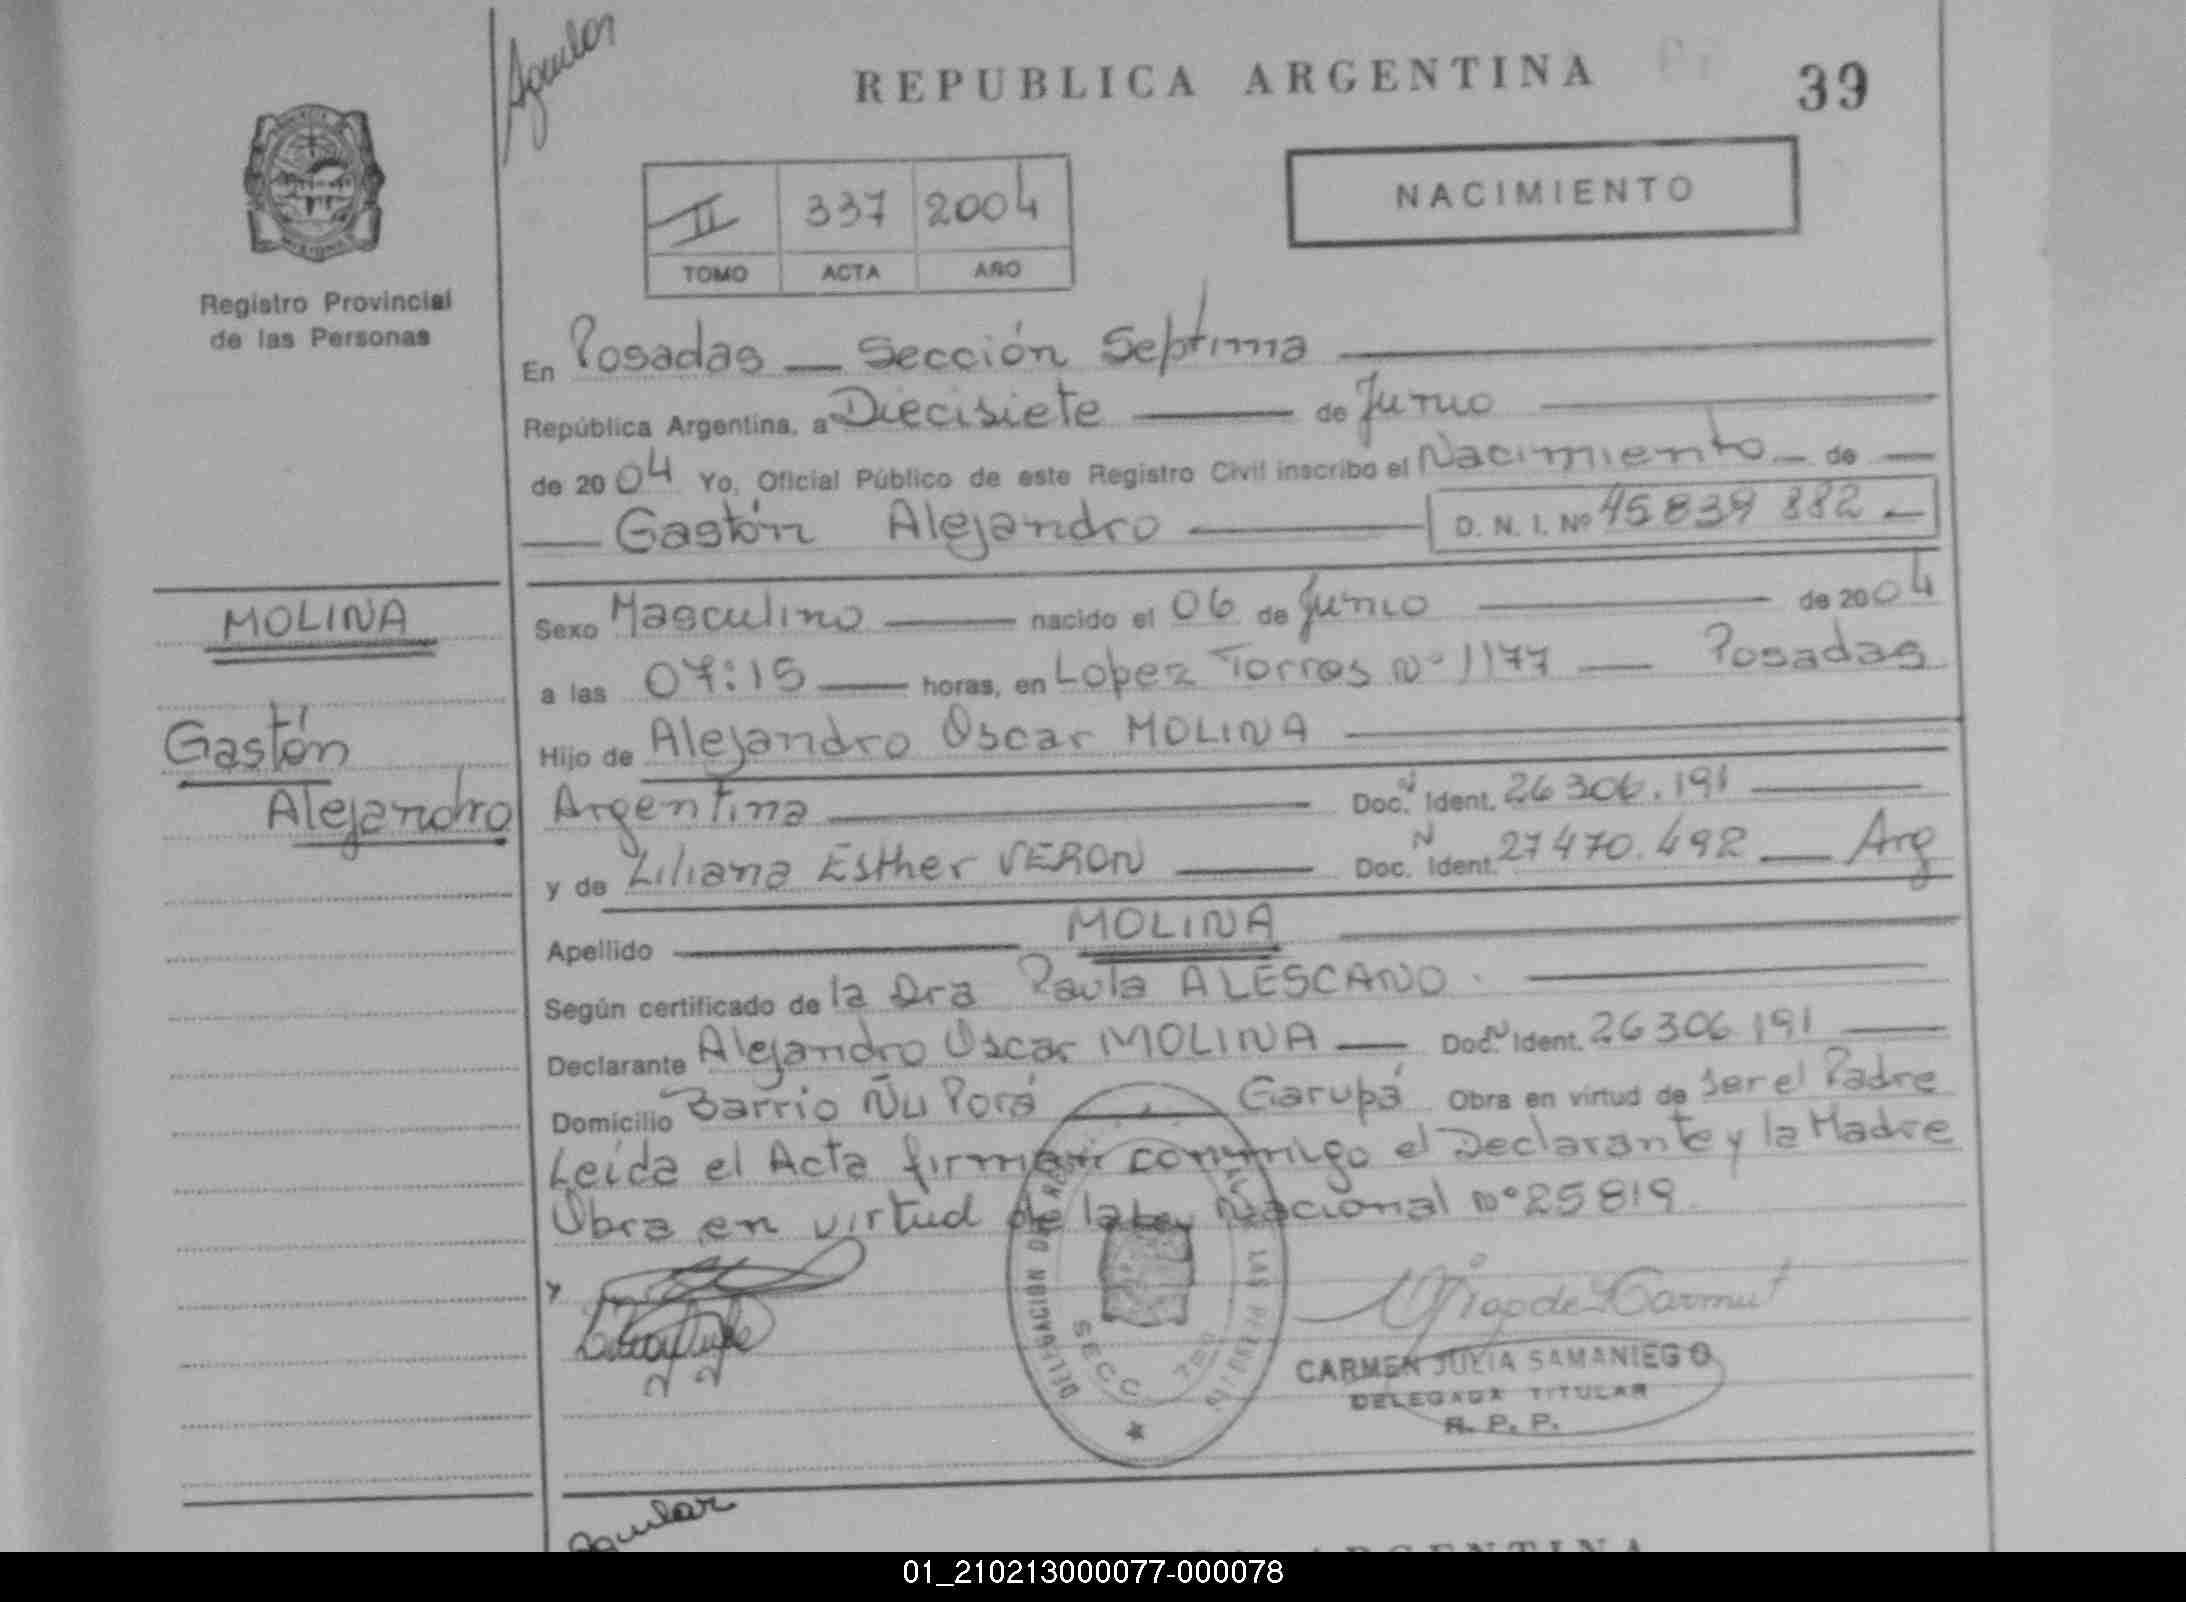 Aguilar
REPUBLICA ARGENTINA
39
II 337 2004
TOMO ACTA AÑO
NACIMIENTO
Registro Provincial
de las Personas
En Posadas — Sección Septima
República Argentina, a Diecisiete — de Junio
de 2004 Yo, Oficial Público de este Registro Civil inscribo el Nacimiento — de —
— Gastón Alejandro — D. N. I. Nº 45 839 882 —
MOLINA
Gastón
Alejandro
Sexo Masculino — nacido el 06 de Junio — de 2004
a las 07:15 — horas, en Lopez Torres Nº 1177 — Posadas
Hijo de Alejandro Oscar MOLINA —
Argentina — Doc. N Ident. 26 306.191 —
y de Liliana Esther VERON — Doc. N Ident. 27 470.492 — Arg
Apellido — MOLINA —
Según certificado de la Dra Paula ALESCANO. —
Declarante Alejandro Oscar MOLINA — Doc. N Ident. 26 306 191 —
Domicilio Barrio Ñu Porá — Garupá Obra en virtud de ser el Padre
Leída el Acta firman conmigo el Declarante y la Madre
Obra en virtud de la Ley Nacional Nº 25819
y
DELEGACION DE LAS PERSONAS
SECC. 7ma
CARMEN JULIA SAMANIEGO
DELEGADA TITULAR
R. P. P.
Aguilar
ARGENTINA
01_210213000077-000078